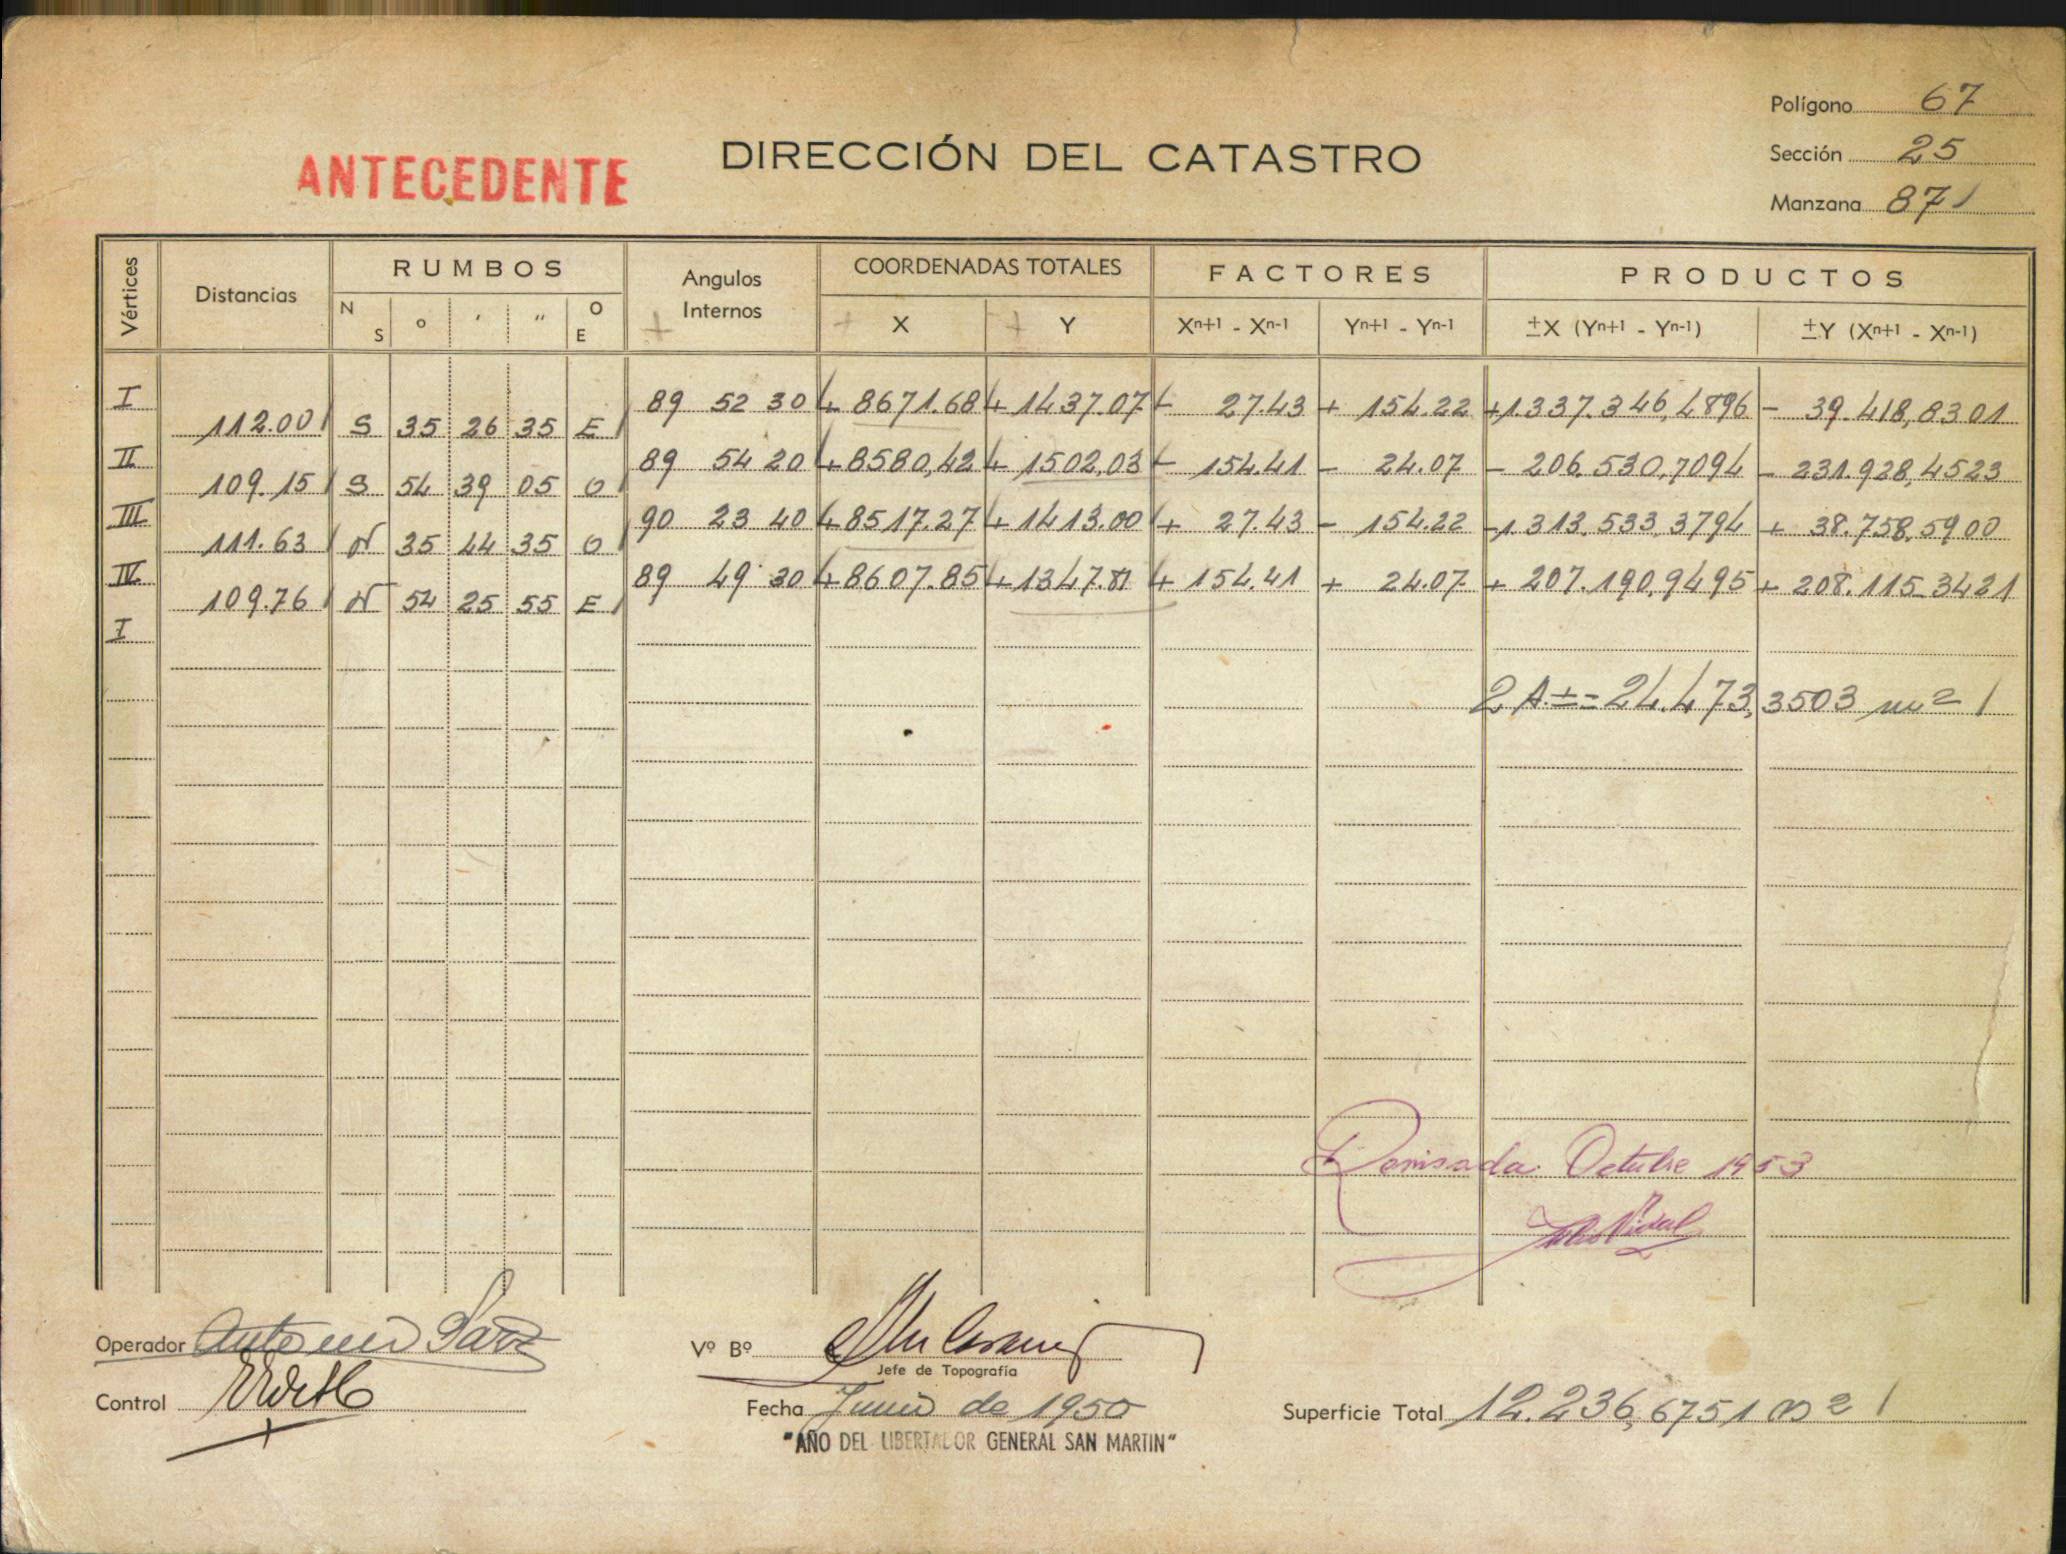 Polígono 67
ANTECEDENTE
DIRECCIÓN DEL CATASTRO
Sección 25
Manzana 871
Vértices Distancias RUMBOS Angulos Internos COORDENADAS TOTALES FACTORES PRODUCTOS
N S o ' " O E X Y Xn+1 - Xn-1 Yn+1 - Yn-1 ±X (Yn+1 - Yn-1) ±Y (Xn+1 - Xn-1)
I 89 52 30 + 8671.68 + 1437.07 + 27.43 + 154.22 +1.337.346,4896 - 39.418,8301
112.00 S 35 26 35 E
II 89 54 20 + 8580,42 + 1502,03 - 154.41 - 24.07 - 206.530,7094 - 231.928,4523
109.15 S 54 39 05 O
III 90 23 40 + 8517.27 + 1413.00 + 27.43 - 154.22 -1.313.533,3794 + 38.758,5900
111.63 N 35 44 35 O
IV 89 49 30 + 8607.85 + 1347.81 + 154.41 + 24.07 + 207.190,9495 + 208.115,3421
109.76 N 54 25 55 E
I
2 A ± = 24.473,3503 m2
Revisada Octubre 1953
Julio Vidal
Operador Antonio Saez
Vº Bº
Jefe de Topografía
Control
Fecha Junio de 1950
Superficie Total 12.236,6751 m2
"AÑO DEL LIBERTADOR GENERAL SAN MARTIN"